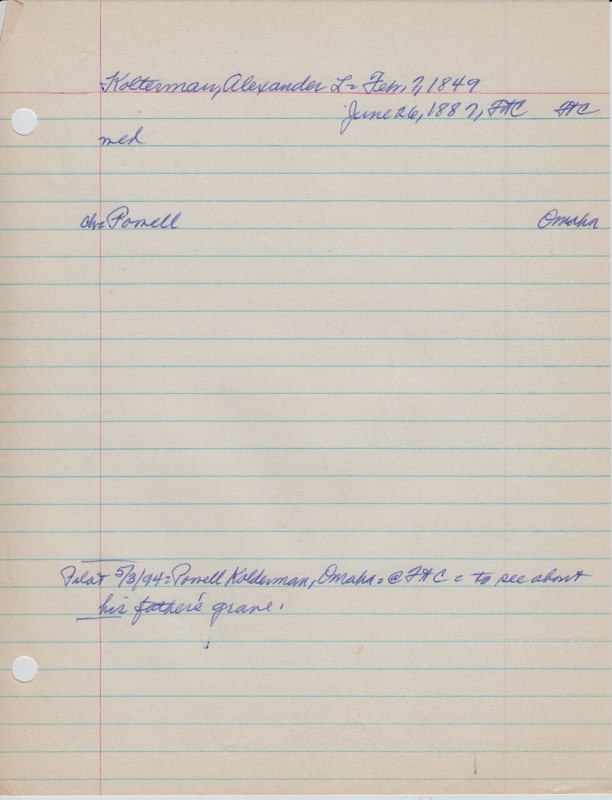 Kolterman, Alexander L = Feb. 7, 1849
June 26, 1887, FHC FHC
med
ch = Powell Omaha
Pilot 5/3/94 = Powell Kolderman, Omaha = @ FHC = to see about
his father's grave.